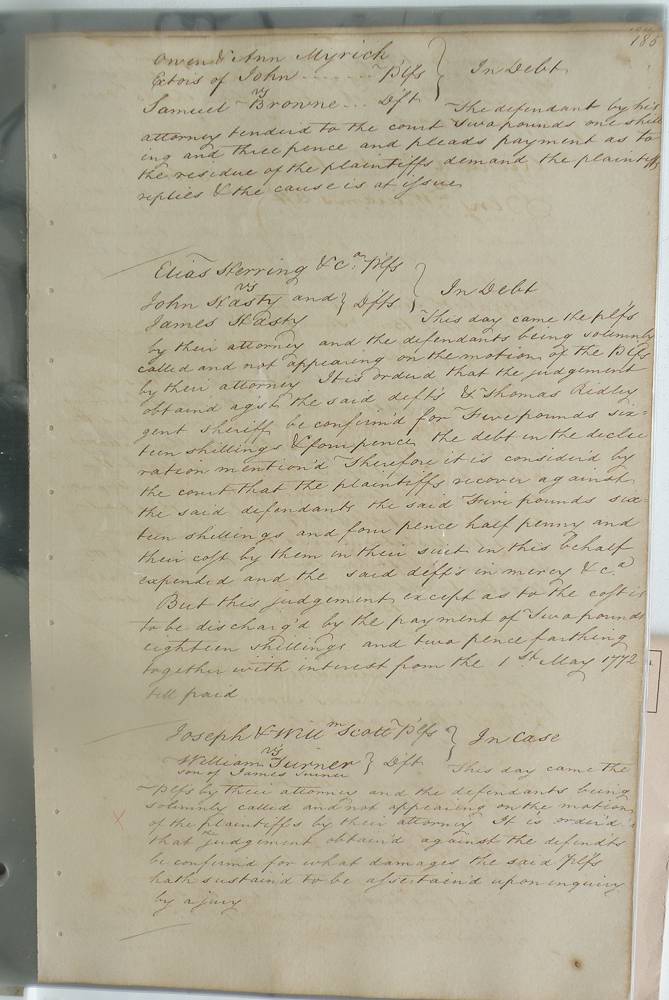 185
Owen & Ann Myrick
Extors of John ------- Plfs } In Debt
vs
Samuel Browne --- Dft The defendant by his
attorney tenderd to the court Two pounds one shill
ing and three pence and pleads payment as to
the residue of the plaintiffs demand the plaintiff
replies & the cause is at issue
Elias Herring & Ca. Plfs
vs } In Debt
John Hasty and } Dffts This day came the plfs
James Hasty
by their attorney and the defendants being solemnly
called and not appearing on the motion of the Plfs
by their attorney It is orderd that the judgement
obtaind agst. the said defts & Thomas Ridley
gent sheriff be confirm'd for Five pounds six=
teen shillings & four pence the debt in the decla
ration mention'd Therefore it is consider'd by
the court that the plaintiffs recover against
the said defendants the said Five pounds six=
teen shillings and four pence half penny and
their cost by them in their suit in this behalf
expended and the said deffs in mercy & ca
But this judgement except as to the cost is
to be discharg'd by the payment of Two pounds
eighteen shillings and two pence farthing
together with interest from the 1st. May 1772
till paid
Joseph & Willm Scott Plfs } In Case
vs
William Turner } Dft This day came the
son of James Turner
Plfs by their attorney and the defendants being
solemnly called and not appearing on the motion
of the plaintiffs by their attorney It is order'd
that the judgement obtain'd against the defendts
be confirm'd for what damages the said Plfs
hath sustain'd to be assertain'd upon inquiry
by a jury